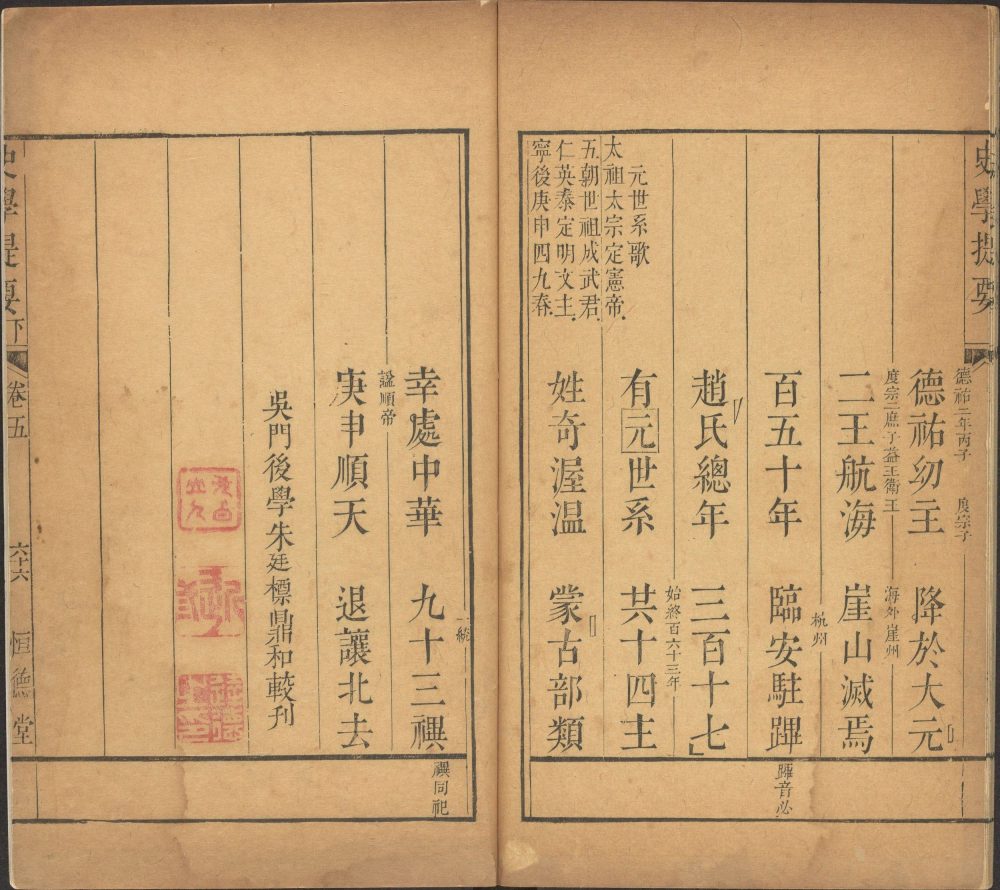 史學提要
德祐二年丙子 度宗子
德祐幼主 降於大元
度宗二庶子益王衛王 海外崖州
二王航海 崖山滅焉
杭州
百五十年 臨安駐蹕
蹕音必
趙氏總年 三百十七
始終百六十三年
有元世系 共十四主
姓奇渥温 蒙古部類
元世系歌
太祖太宗定憲帝
五朝世祖成武君
仁英泰定明文主
寧後庚申四九春
一統
幸處中華 九十三禩
禩同祀
諡順帝
庚申順天 退讓北去
吳門後學朱廷標鼎和較刋
史學提要下
卷五
六十六
恒德堂